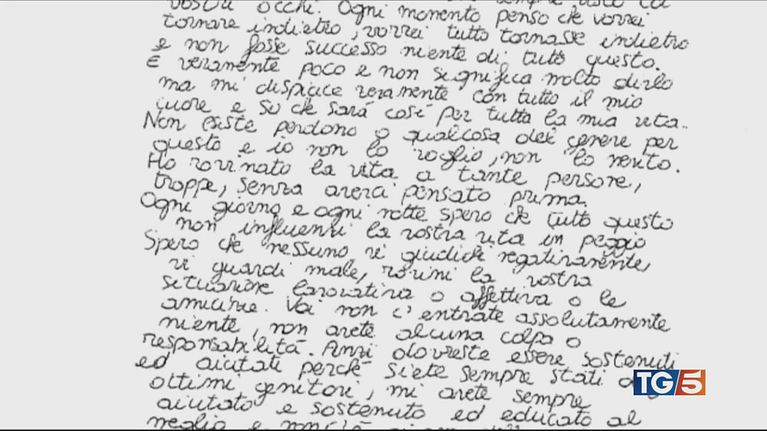 vostri occhi. Ogni momento penso che vorrei
tornare indietro, vorrei tutto tornasse indietro
e non fosse successo niente di tutto questo.
È veramente poco e non significa molto dirlo
ma mi dispiace veramente con tutto il mio
cuore e so che sarà così per tutta la mia vita.
Non esiste perdono o qualcosa del genere per
questo e io non lo voglio, non lo merito.
Ho rovinato la vita a tante persone,
troppe, senza averci pensato prima.
Ogni giorno e ogni notte spero che tutto questo
non influenzi la vostra vita in peggio
Spero che nessuno vi giudichi negativamente,
vi guardi male, rovini la vostra
situazione lavorativa o affettiva o le
amicizie. Voi non c'entrate assolutamente
niente, non avete alcuna colpa o
responsabilità. Anzi dovreste essere sostenuti
ed aiutati perché siete sempre stati
ottimi genitori, mi avete sempre
aiutato e sostenuto ed educato al
meglio e
TG5